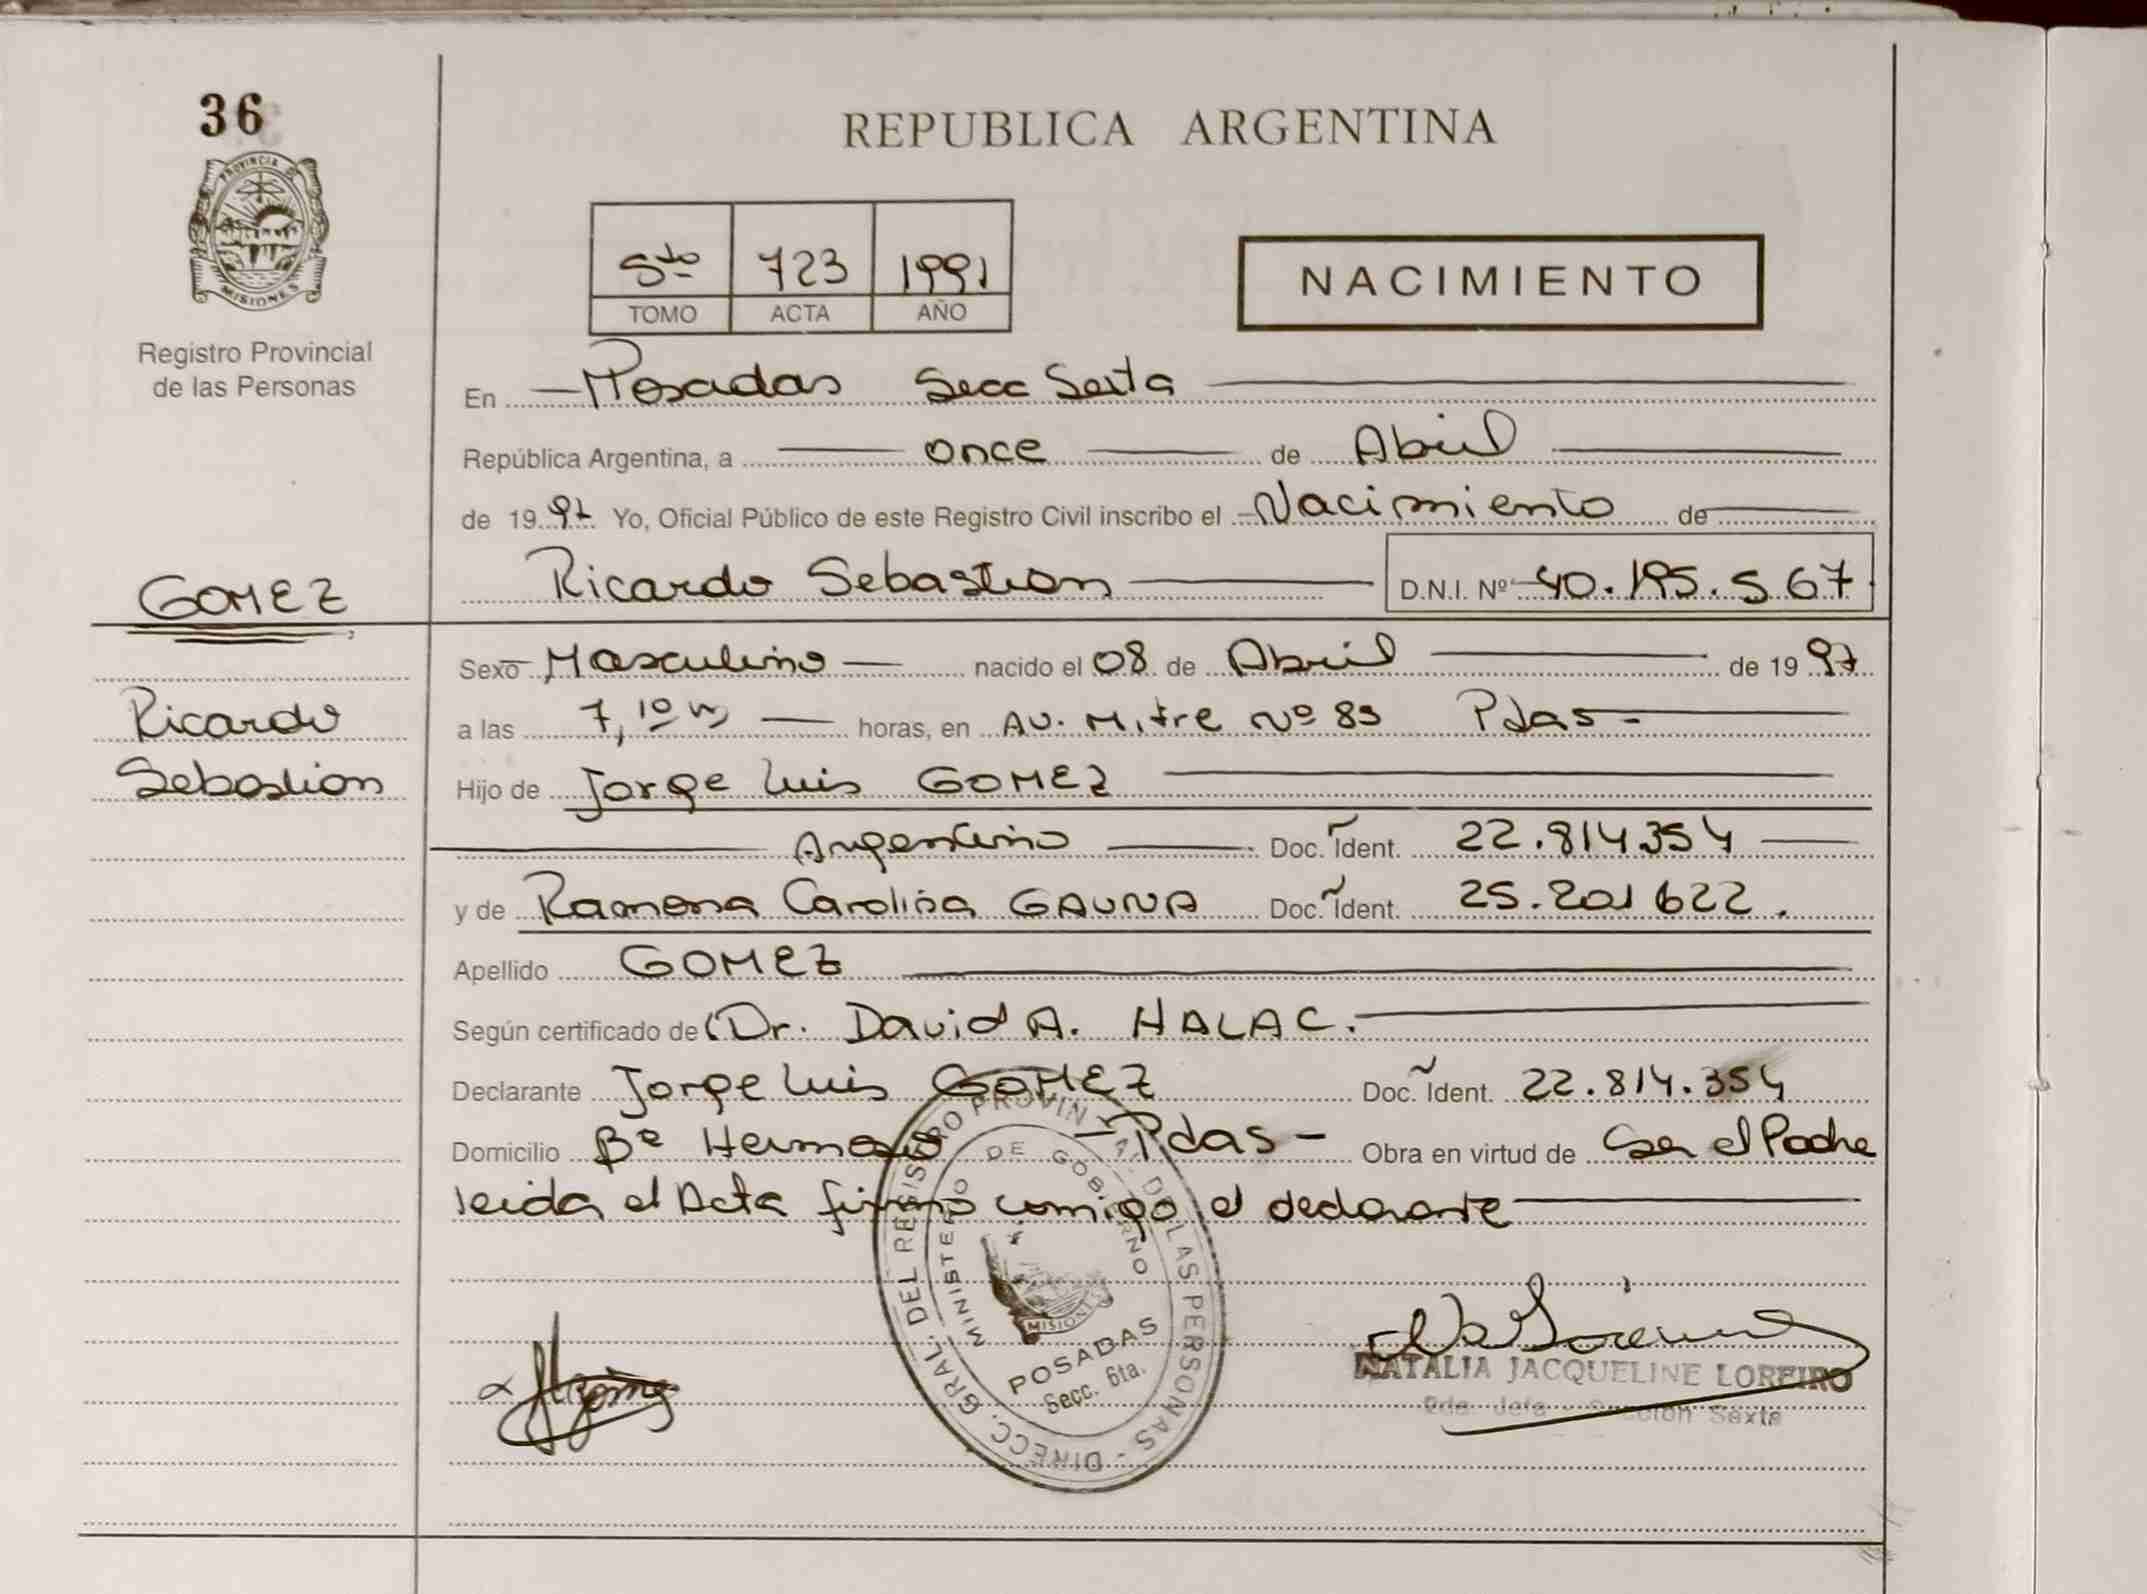 36
PROVINCIA DE
MISIONES
Registro Provincial
de las Personas
REPUBLICA ARGENTINA
5to 723 1991
TOMO ACTA AÑO
NACIMIENTO
En Posadas Secc Sexta
República Argentina, a once de Abril
de 1997 Yo, Oficial Público de este Registro Civil inscribo el Nacimiento de
Ricardo Sebastian D.N.I. Nº 40.195.567
GOMEZ
Ricardo
Sebastian
Sexo Masculino nacido el 08 de Abril de 1997
a las 7,10 horas, en AV. Mitre Nº 89 Pdas-
Hijo de Jorge Luis GOMEZ
Argentino Doc. Ident. 22.814.354
y de Ramona Carolina GAUNA Doc. Ident. 25.201622.
Apellido GOMEZ
Según certificado de Dr. David A. HALAC.
Declarante Jorge Luis GOMEZ Doc. Ident. 22.814.354
Domicilio Bº Hermoso -Pdas- Obra en virtud de Ser el Padre
leida el Acta firma comigo el declarante
DIRECC. GRAL. DEL REGISTRO PROVINCIAL DE LAS PERSONAS -
MINISTERIO DE GOBIERNO
MISIONES
POSADAS
Secc. 6ta.
NATALIA JACQUELINE LOREIRO
2da. Jefa - Sección Sexta